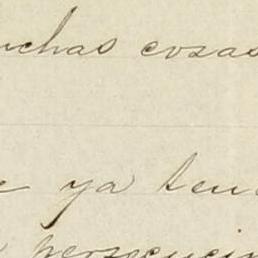 uchas cosas
ya tend
persecucin